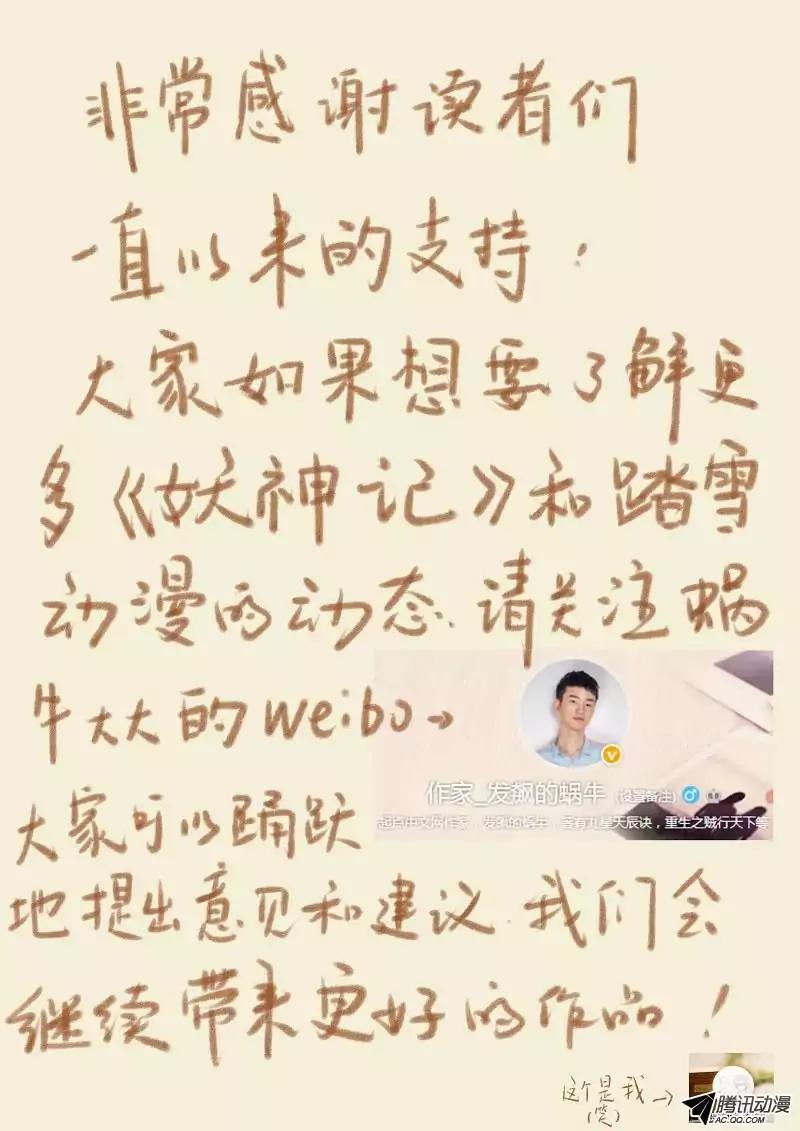 非常感谢读者们
一直以来的支持！
大家如果想要了解更
多《妖神记》和踏雪
动漫的动态、请关注蜗
牛大大的weibo→
作家_发飙的蜗牛 (设置备注)
起点中文网作家，发飙的蜗牛，著有九星天辰诀，重生之贼行天下等
大家可以踊跃
地提出意见和建议.我们会
继续带来更好的作品！
这个是我→
(笑)
腾讯动漫
AC.QQ.COM